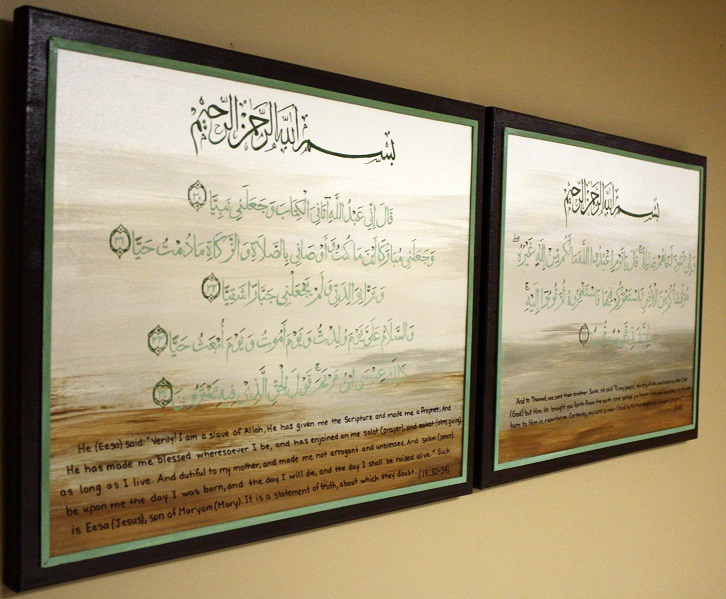 بِسْمِ اللَّهِ الرَّحْمَنِ الرَّحِيمِ
قَالَ إِنِّي عَبْدُ اللَّهِ آتَانِيَ الْكِتَابَ وَجَعَلَنِي نَبِيًّا ٣٠
وَجَعَلَنِي مُبَارَكًا أَيْنَ مَا كُنتُ وَأَوْصَانِي بِالصَّلَاةِ وَالزَّكَاةِ مَا دُمْتُ حَيًّا ٣١
وَبَرًّا بِوَالِدَتِي وَلَمْ يَجْعَلْنِي جَبَّارًا شَقِيًّا ٣٢
وَالسَّلَامُ عَلَيَّ يَوْمَ وُلِدتُّ وَيَوْمَ أَمُوتُ وَيَوْمَ أُبْعَثُ حَيًّا ٣٣
ذَلِكَ عِيسَى ابْنُ مَرْيَمَ ۚ قَوْلَ الْحَقِّ الَّذِي فِيهِ يَمْتَرُونَ ٣٤
He (Eesa) said: "Verily! I am a slave of Allah, He has given me the Scripture and made me a Prophet; And
He has made me blessed wheresoever I be, and has enjoined on me salat (prayer), and zakat (alms giving),
as long as I live. And dutiful to my mother, and made me not arrogant and unblessed. And salam (peace)
be upon me the day I was born, and the day I will die, and the day I shall be raised alive." Such
is Eesa (Jesus), son of Maryam (Mary). It is a statement of truth, about which they doubt. (19:30-34)
بِسْمِ اللَّهِ الرَّحْمَنِ الرَّحِيمِ
وَإِلَى ثَمُودَ أَخَاهُمْ صَالِحًا ۚ قَالَ يَا قَوْمِ اعْبُدُوا اللَّهَ مَا لَكُم مِّنْ إِلَهٍ غَيْرُهُ ۖ
هُوَ أَنشَأَكُم مِّنَ الْأَرْضِ وَاسْتَعْمَرَكُمْ فِيهَا فَاسْتَغْفِرُوهُ ثُمَّ تُوبُوا إِلَيْهِ ۚ
إِنَّ رَبِّي قَرِيبٌ مُّجِيبٌ
And to Thamud, we sent their brother Saleh. He said "O my people!
(God) but Him. He brought you forth from the earth and settled you
turn to Him in repentance. Certainly, my Lord is near